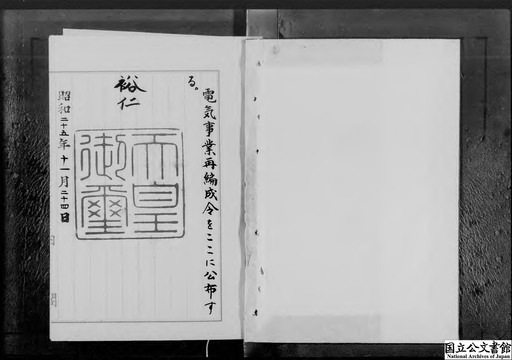 電気事業再編成令をここに公布す
る。
裕仁
天皇
御璽
昭和二十五年十一月二十四日
国立公文書館
National Archives of Japan